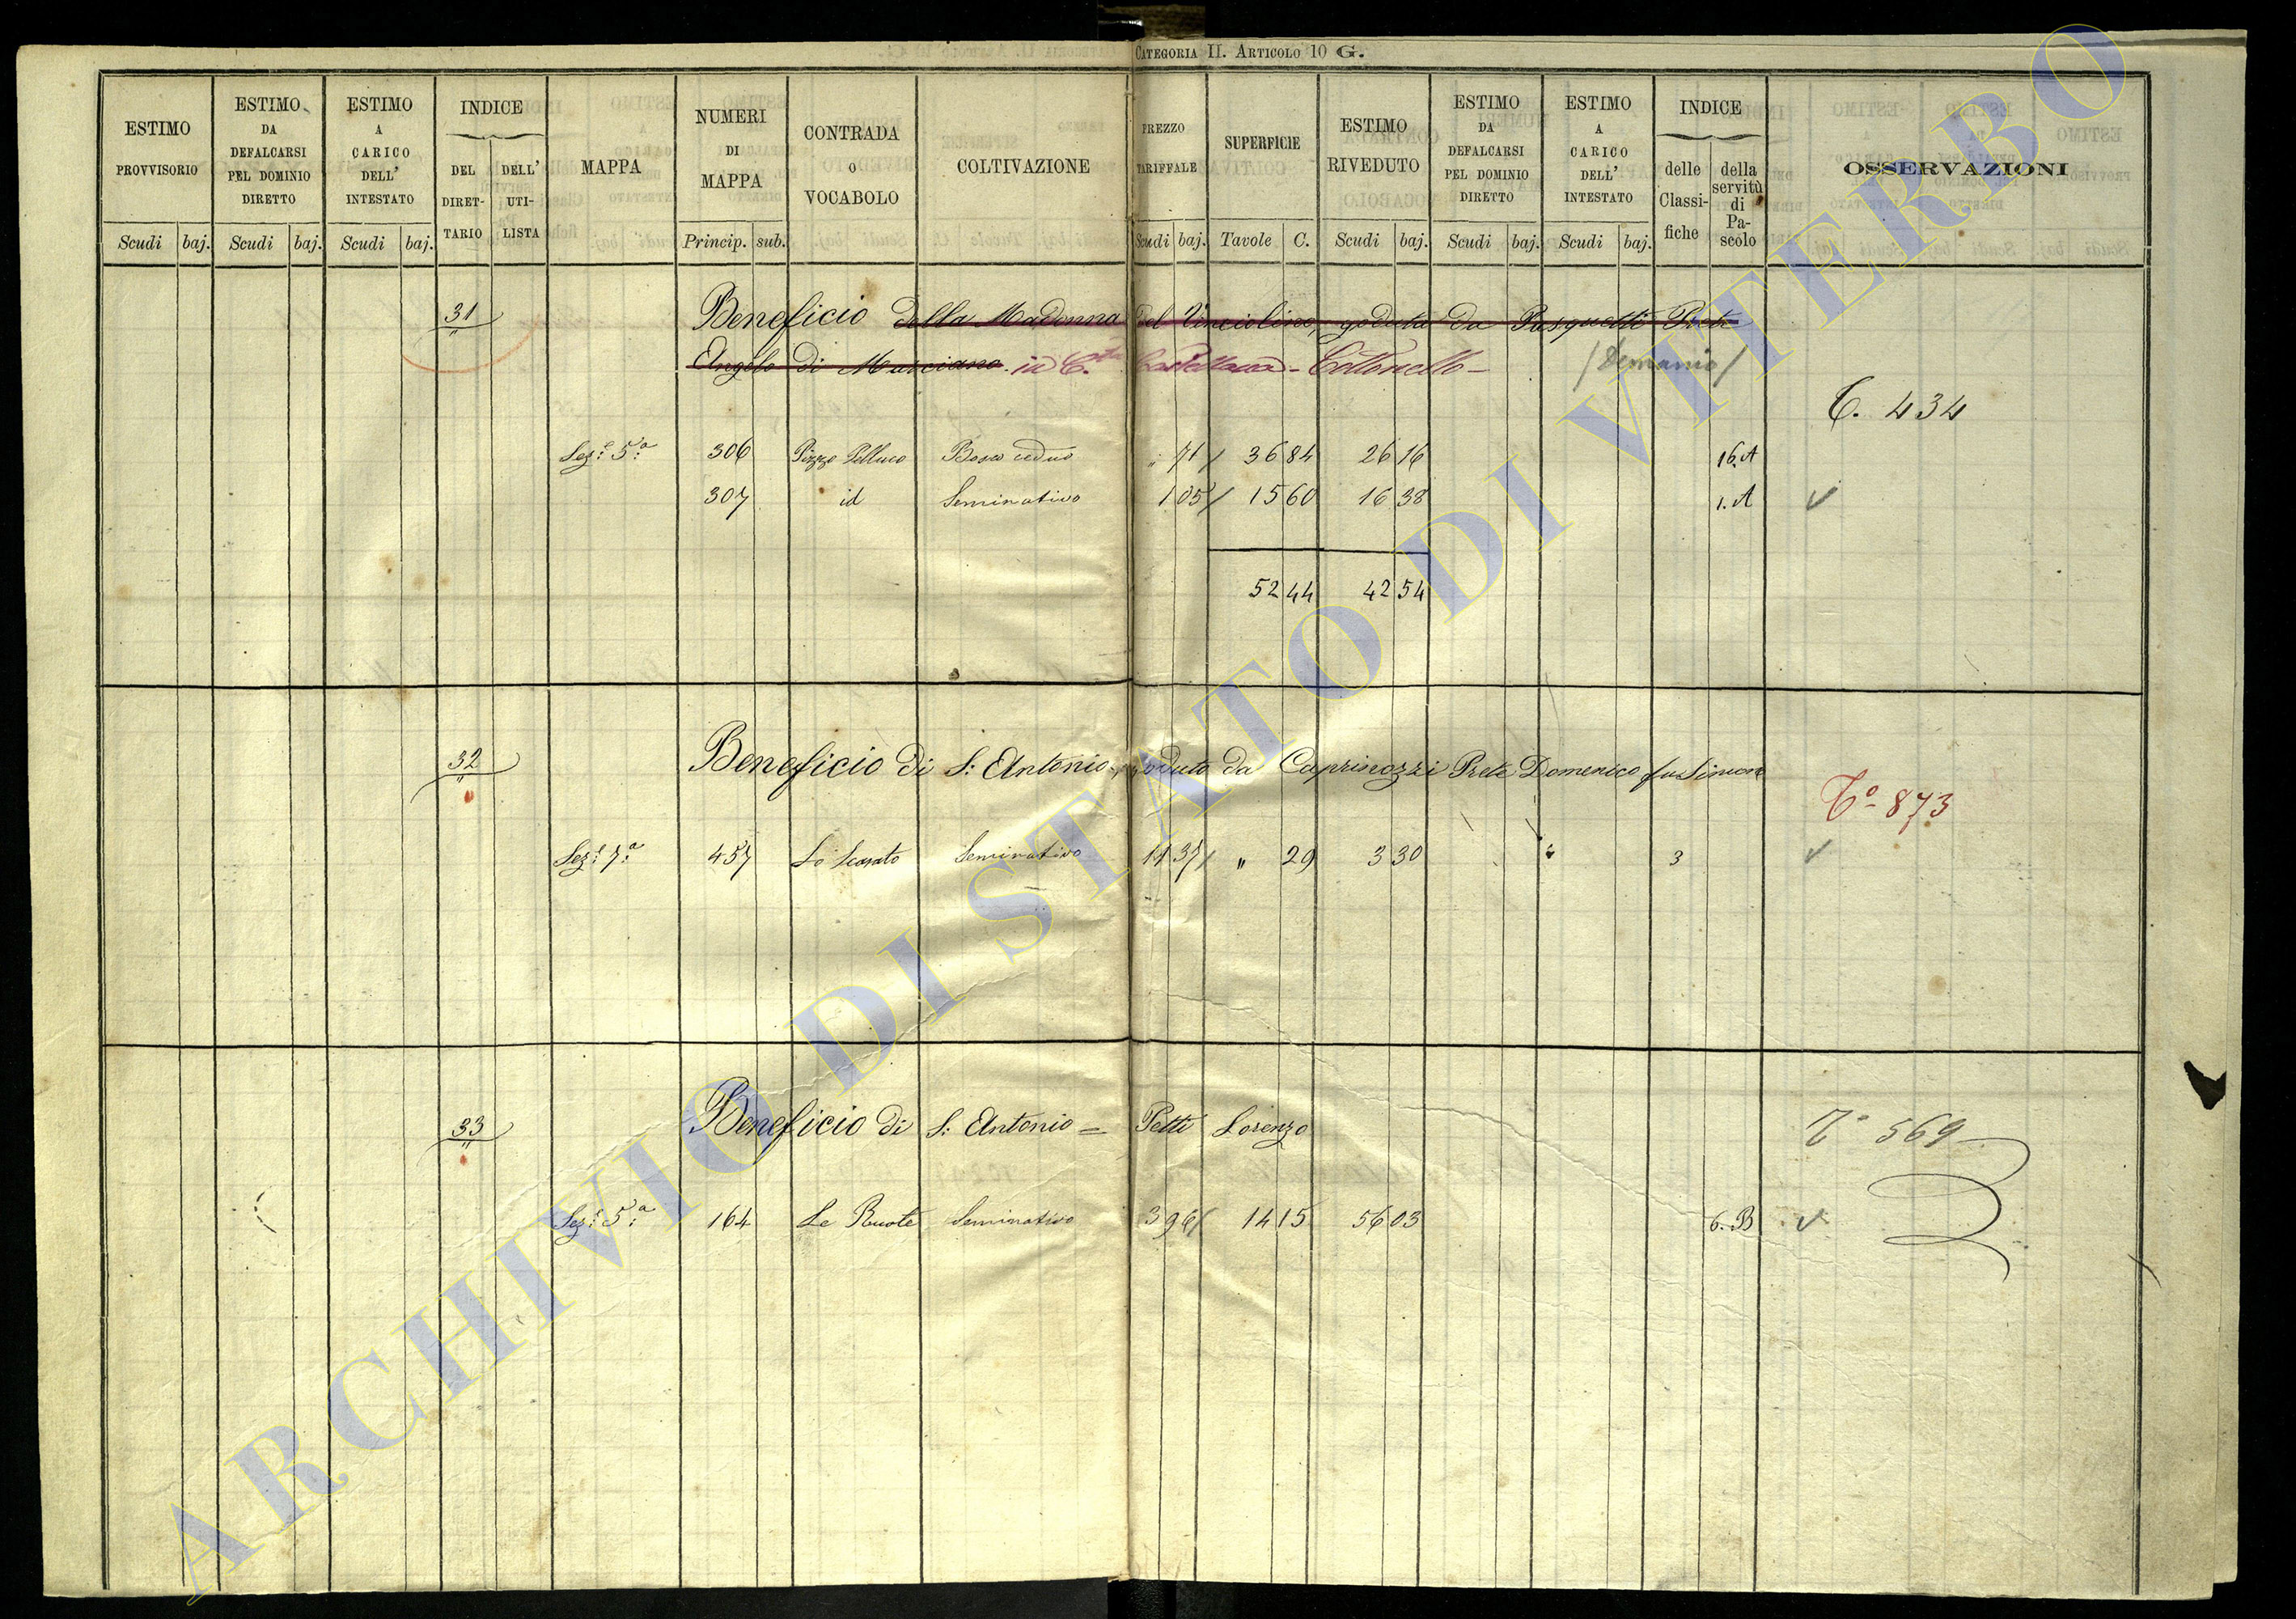 CATEGORIA II. ARTICOLO 10 G.
ESTIMO PROVVISORIO Scudi baj.
ESTIMO DA DEFALCARSI PEL DOMINIO DIRETTO Scudi baj.
ESTIMO A CARICO DELL' INTESTATO Scudi baj.
INDICE DEL DIRET-TARIO DELL' UTI-LISTA
MAPPA
NUMERI DI MAPPA Princip. sub.
CONTRADA O VOCABOLO
COLTIVAZIONE
PREZZO TARIFFALE Scudi baj.
SUPERFICIE Tavole C.
ESTIMO RIVEDUTO Scudi baj.
ESTIMO DA DEFALCARSI PEL DOMINIO DIRETTO Scudi baj.
ESTIMO A CARICO DELL' INTESTATO Scudi baj.
INDICE delle Classi-fiche della servitù di Pa-scolo
OSSERVAZIONI
31 Beneficio della Madonna del goduto da Pasquetti Prete
Angelo di Marciano in C.
/Demanio/
T. 434
Sez.e 5.a 306 Pizzo Pelluco Bosco ceduo " 71/ 36 84 26 16 16.A
307 id Seminativo 1 05/ 15 60 16 38 1.A
52 44 42 54
32 Beneficio di S. Antonio goduto da Caprinozzi Prete Domenico fu Simone
T.o 873
Sez.e 7.a 457 Lo Scasato Seminativo 11 37/ " 29 3 30 3
33 Beneficio di S. Antonio = Petti Lorenzo
T.o 569
Sez.e 5.a 164 Le Ruote Seminativo 3 96/ 14 15 56 03 6.B
ARCHIVIO DI STATO DI VITERBO